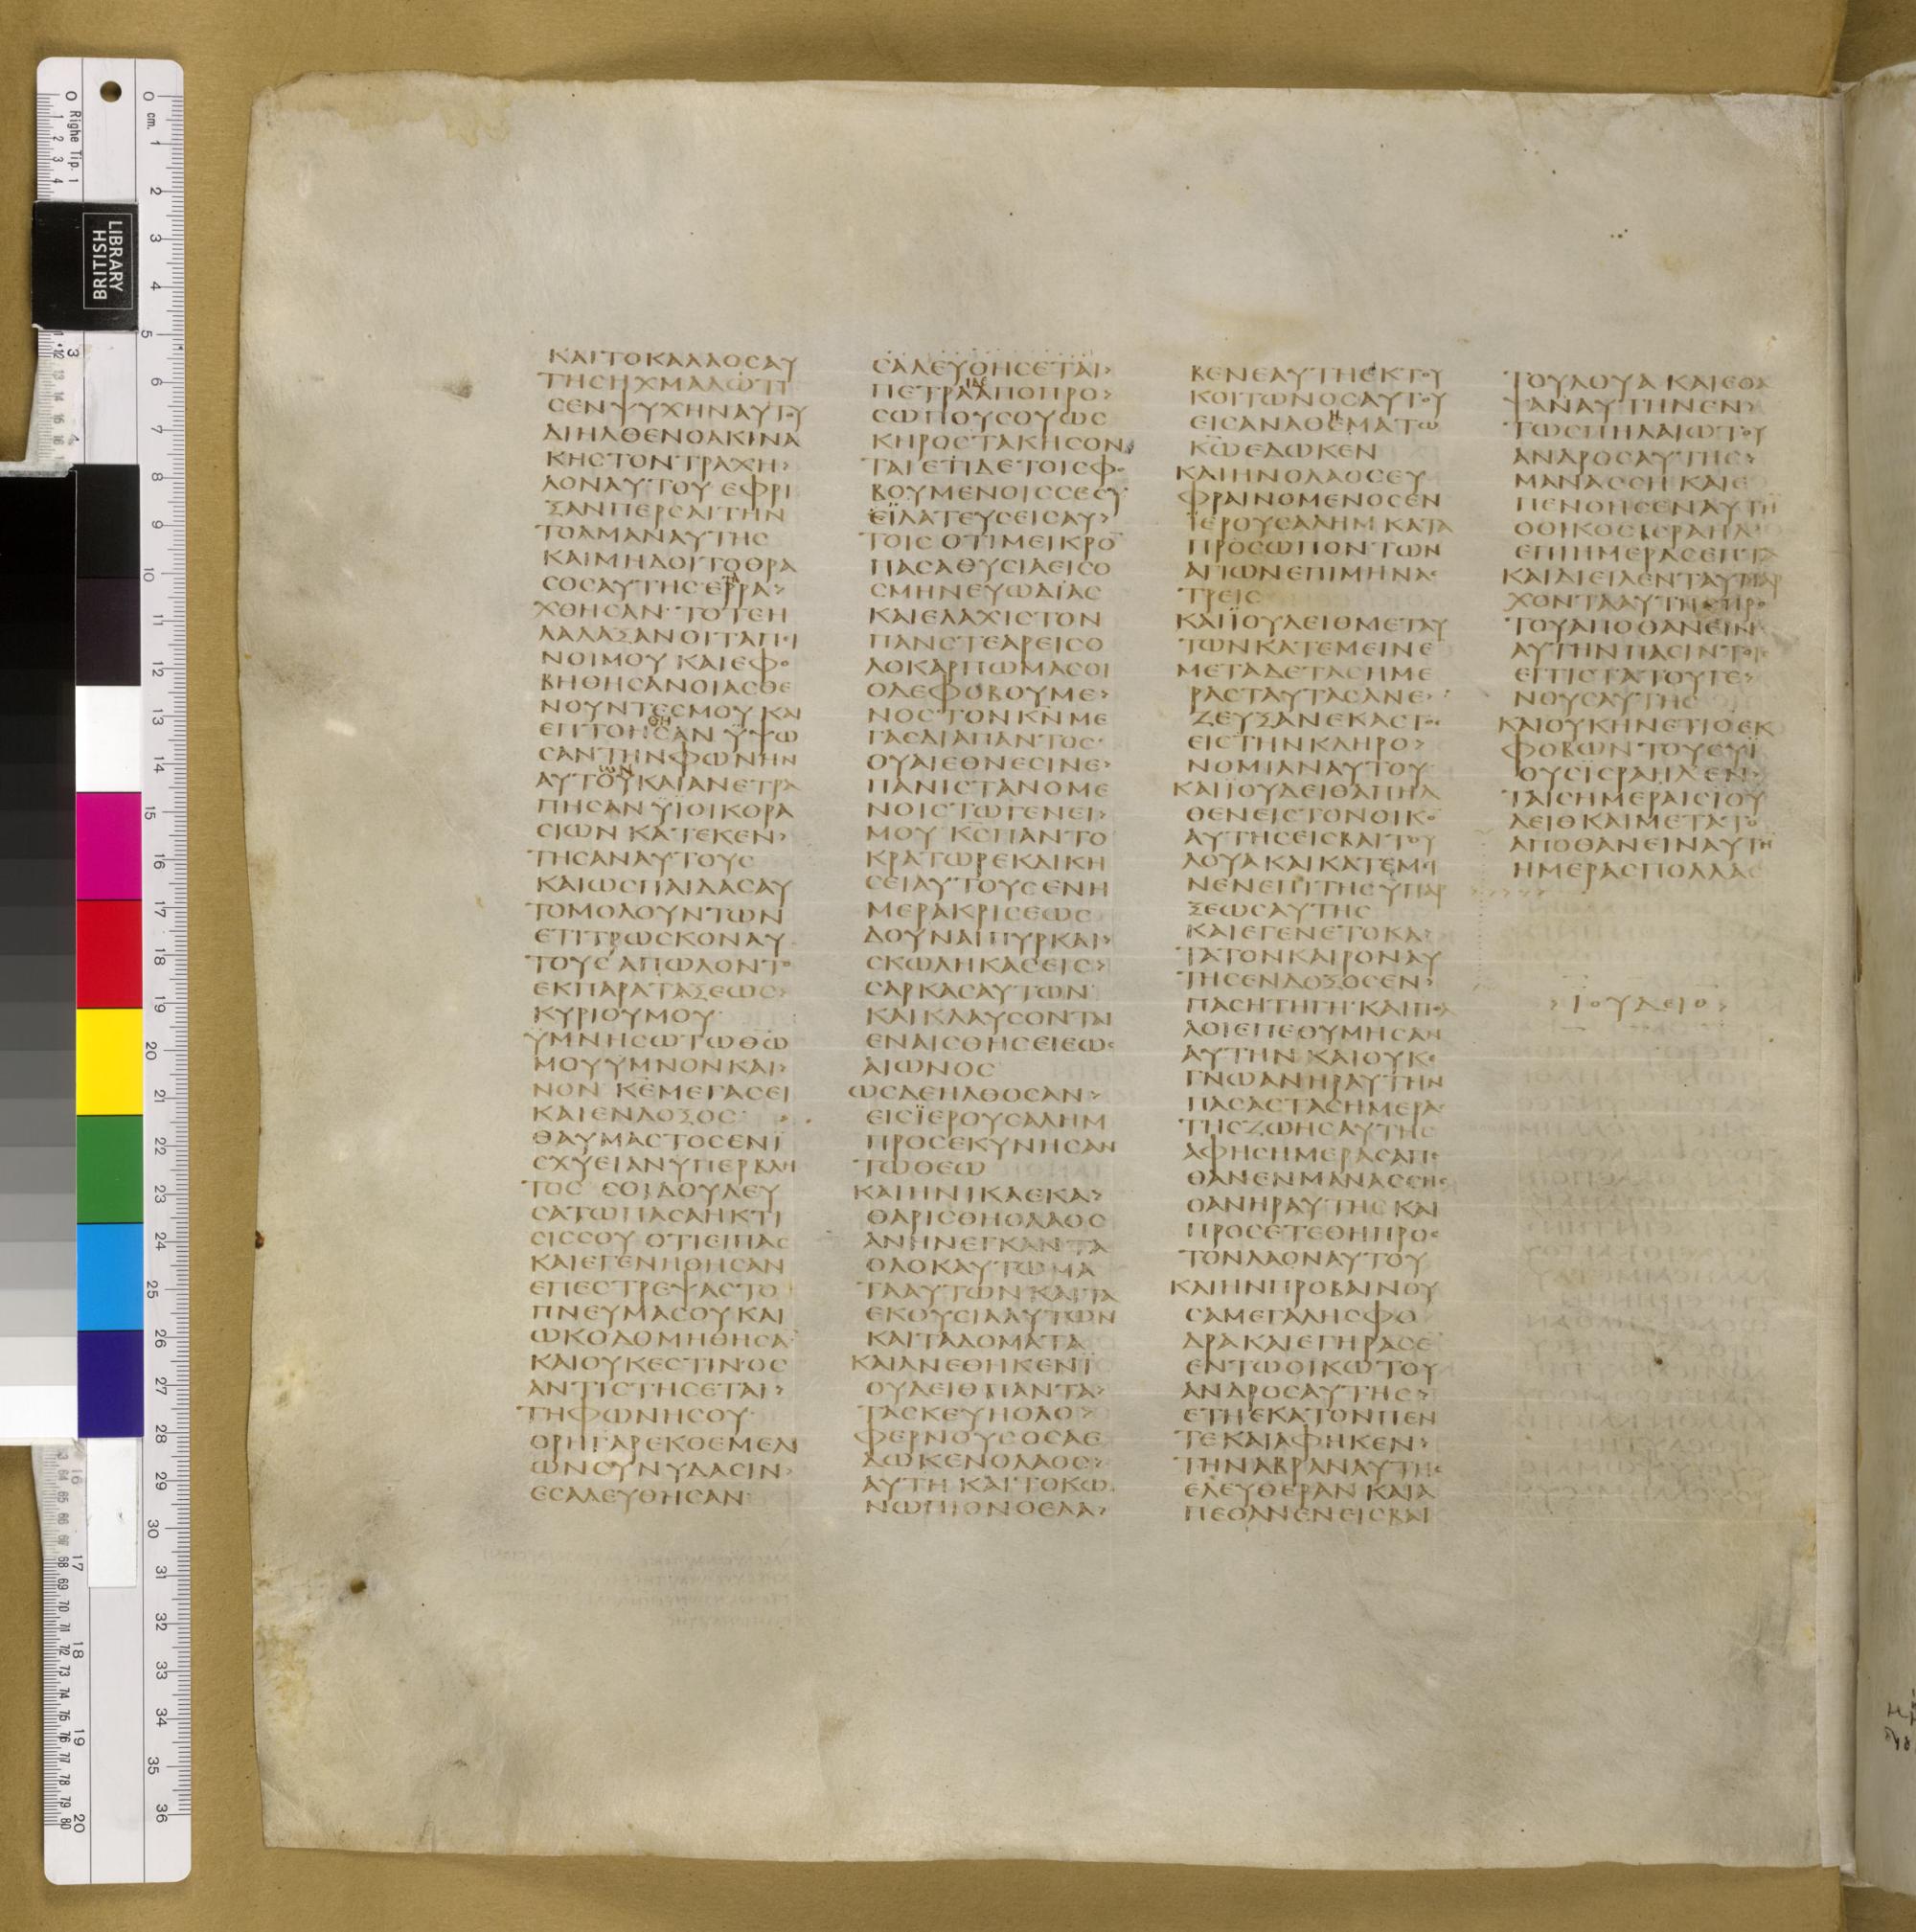 ΚΑΙΤΟΚΑΛΛΟϹΑΥ
ΤΗϹΗΧΜΑΛΩΤΙ
ϹΕΝΨΥΧΗΝΑΥΤΟΥ
ΔΙΗΛΘΕΝΟΑΚΙΝΑ
ΚΗϹΤΟΝΤΡΑΧΗ>
ΛΟΝΑΥΤΟΥ ΕΦΡΙ
ΞΑΝΠΕΡϹΑΙΤΗΝ
ΤΟΛΜΑΝΑΥΤΗϹ
ΚΑΙΜΗΔΟΙΤΟΘΡΑ
ϹΟϹΑΥΤΗϹΕΡΡΑ>
ΧΘΗϹΑΝ ΤΟΤΕΗ
ΛΑΛΑΞΑΝΟΙΤΑΠΙ
ΝΟΙΜΟΥ ΚΑΙΕΦΟ
ΒΗΘΗϹΑΝΟΙΑϹΘΕ
ΝΟΥΝΤΕϹΜΟΥ ΚΑΙ
ΕΠΤΟΗϹΑΝ ΫΨΩ
ϹΑΝΤΗΝΦΩΝΗΝ
ΑΥΤΟΥΚΑΙΑΝΕΤΡΑ
ΠΗϹΑΝ ΫΙΟΙΚΟΡΑ
ϹΙΩΝ ΚΑΤΕΚΕΝ>
ΤΗϹΑΝΑΥΤΟΥϹ
ΚΑΙΩϹΠΑΙΔΑϹΑΥ
ΤΟΜΟΛΟΥΝΤΩΝ
ΕΤΙΤΡΩϹΚΟΝΑΥ
ΤΟΥϹ ΑΠΩΛΟΝΤΟ
ΕΚΠΑΡΑΤΑΞΕΩϹ>
ΚΥΡΙΟΥΜΟΥ
ΫΜΝΗϹΩΤΩΘΩ
ΜΟΥΥΜΝΟΝΚΑΙ>
ΝΟΝ ΚΕΜΕΓΑϹΕΙ
ΚΑΙΕΝΔΟΞΟϹ
ΘΑΥΜΑϹΤΟϹΕΝΙ
ϹΧΥΕΙΑΝΥΠΕΡΒΛΗ
ΤΟϹ ϹΟΙΔΟΥΛΕΥ
ϹΑΤΩΠΑϹΑΗΚΤΙ
ϹΙϹϹΟΥ ΟΤΙΕΙΠΑϹ
ΚΑΙΕΓΕΝΗΘΗϹΑΝ
ΕΠΕϹΤΡΕΨΑϹΤΟ
ΠΝΕΥΜΑϹΟΥΚΑΙ
ΩΚΟΔΟΜΗΘΗϹΑ
ΚΑΙΟΥΚΕϹΤΙΝΟϹ
ΑΝΤΙϹΤΗϹΕΤΑΙ>
ΤΗΦΩΝΗϹΟΥ
ΟΡΗΓΑΡΕΚΘΕΜΕΛΙ
ΩΝϹΥΝΥΔΑϹΙΝ>
ΕϹΑΛΕΥΘΗϹΑΝ
ϹΑΛΕΥΘΗϹΕΤΑΙ>
ΠΕΤΡΑΑΠΟΠΡΟ>
ϹΩΠΟΥϹΟΥΩϹ
ΚΗΡΟϹΤΑΚΗϹΟΝ
ΤΑΙΕΠΙΔΕΤΟΙϹΦΟ
ΒΟΥΜΕΝΟΙϹϹΕϹΥ
ΕΪΛΑΤΕΥϹΕΙϹΑΥ>
ΤΟΙϹ ΟΤΙΜΕΙΚΡΟ
ΠΑϹΑΘΥϹΙΑΕΙϹΟ
ϹΜΗΝΕΥΩΔΙΑϹ
ΚΑΙΕΛΑΧΙϹΤΟΝ
ΠΑΝϹΤΕΑΡΕΙϹΟ
ΛΟΚΑΡΠΩΜΑϹΟΙ
ΟΔΕΦΟΒΟΥΜΕ>
ΝΟϹΤΟΝΚΝΜΕ
ΓΑϹΔΙΑΠΑΝΤΟϹ
ΟΥΑΙΕΘΝΕϹΙΝΕ>
ΠΑΝΙϹΤΑΝΟΜΕ
ΝΟΙϹΤΩΓΕΝΕΙ>
ΜΟΥ ΚϹΠΑΝΤΟ
ΚΡΑΤΩΡΕΚΔΙΚΗ
ϹΕΙΑΥΤΟΥϹΕΝΗ
ΜΕΡΑΚΡΙϹΕΩϹ
ΔΟΥΝΑΙΠΥΡΚΑΙ>
ϹΚΩΛΗΚΑϹΕΙϹ>
ϹΑΡΚΑϹΑΥΤΩΝ
ΚΑΙΚΛΑΥϹΟΝΤΑΙ
ΕΝΑΙϹΘΗϹΕΙΕΩϹ
ΑΙΩΝΟϹ
ΩϹΔΕΗΛΘΟϹΑΝ>
ΕΙϹΪΕΡΟΥϹΑΛΗΜ
ΠΡΟϹΕΚΥΝΗϹΑΝ
ΤΩΘΕΩ
ΚΑΙΗΝΙΚΑΕΚΑ>
ΘΑΡΙϹΘΗΟΛΑΟϹ
ΑΝΗΝΕΓΚΑΝΤΑ
ΟΛΟΚΑΥΤΩΜΑ
ΤΑΑΥΤΩΝΚΑΙΤΑ
ΕΚΟΥϹΙΑΑΥΤΩΝ
ΚΑΙΤΑΔΟΜΑΤΑ
ΚΑΙΑΝΕΘΗΚΕΝΪ
ΟΥΔΕΙΘΠΑΝΤΑ>
ΤΑϹΚΕΥΗΟΛΟ>
ΦΕΡΝΟΥϹΟϹΑΕ
ΔΩΚΕΝΟΛΑΟϹ>
ΑΥΤΗ ΚΑΙΤΟΚΩ
ΝΩΠΙΟΝΟΕΛΑ>
ΒΕΝΕΑΥΤΗΕΚΤΟΥ
ΚΟΙΤΩΝΟϹΑΥΤΟΥ
ΕΙϹΑΝΑΘΕΜΑΤΩ
ΚΩΕΔΩΚΕΝ
ΚΑΙΗΝΟΛΑΟϹΕΥ
ΦΡΑΙΝΟΜΕΝΟϹΕΝ
ΪΕΡΟΥϹΑΛΗΜ ΚΑΤΑ
ΠΡΟϹΩΠΟΝΤΩΝ
ΑΓΙΩΝΕΠΙΜΗΝΑ
ΤΡΕΙϹ
ΚΑΙΪΟΥΔΕΙΘΜΕΤΑΥ
ΤΩΝΚΑΤΕΜΕΙΝΕ
ΜΕΤΑΔΕΤΑϹΗΜΕ
ΡΑϹΤΑΥΤΑϹΑΝΕ>
ΖΕΥΞΑΝΕΚΑϹΤΟ
ΕΙϹΤΗΝΚΛΗΡΟ>
ΝΟΜΙΑΝΑΥΤΟΥ
ΚΑΙΪΟΥΔΕΙΘΑΠΗΛ
ΘΕΝΕΙϹΤΟΝΟΙΚΟ
ΑΥΤΗϹΕΙϹΒΑΙΤΟΥ
ΛΟΥΑΚΑΙΚΑΤΕΜΙ
ΝΕΝΕΠΙΤΗϹΫΠΑΡ
ΞΕΩϹΑΥΤΗϹ
ΚΑΙΕΓΕΝΕΤΟΚΑ
ΤΑΤΟΝΚΑΙΡΟΝΑΥ
ΤΗϹΕΝΔΟΞΟϹΕΝ>
ΠΑϹΗΤΗΓΗ ΚΑΙΠΟΛ
ΛΟΙΕΠΕΘΥΜΗϹΑΝ
ΑΥΤΗΝ ΚΑΙΟΥΚΕ
ΓΝΩΑΝΗΡΑΥΤΗΝ
ΠΑϹΑϹΤΑϹΗΜΕΡΑ
ΤΗϹΖΩΗϹΑΥΤΗϹ
ΑΦΗϹΗΜΕΡΑϹΑΠΕ
ΘΑΝΕΝΜΑΝΑϹϹΗϹ
ΟΑΝΗΡΑΥΤΗϹ ΚΑΙ
ΠΡΟϹΕΤΕΘΗΠΡΟϹ
ΤΟΝΛΑΟΝΑΥΤΟΥ
ΚΑΙΗΝΠΡΟΒΑΙΝΟΥ
ϹΑΜΕΓΑΛΗϹΦΟ
ΔΡΑΚΑΙΕΓΗΡΑϹΕ
ΕΝΤΩΟΙΚΩΤΟΥ
ΑΝΔΡΟϹΑΥΤΗϹ>
ΕΤΗΕΚΑΤΟΝΠΕΝ
ΤΕΚΑΙΑΦΗΚΕΝ>
ΤΗΝΑΒΡΑΝΑΥΤΗϹ
ΕΛΕΥΘΕΡΑΝ ΚΑΙΑ
ΠΕΘΑΝΕΝΕΙϹΒΑΙ
ΤΟΥΛΟΥΑ ΚΑΙΕΘΑ
ΨΑΝΑΥΤΗΝΕΝ>
ΤΩϹΠΗΛΑΙΩΤΟΥ
ΑΝΔΡΟϹΑΥΤΗϹ>
ΜΑΝΑϹϹΗ ΚΑΙΕ
ΠΕΝΘΗϹΕΝΑΥΤΗ
ΟΟΙΚΟϹΙϹΡΑΗΛ
ΕΠΙΗΜΕΡΑϹΕΠΤΑ
ΚΑΙΔΙΕΙΛΕΝΤΑΥΠΑΡ
ΧΟΝΤΑΑΥΤΗϹΠΡΟ
ΤΟΥΑΠΟΘΑΝΕΙΝ
ΑΥΤΗΝΠΑϹΙΝΤΟΙϹ
ΕΓΓΙϹΤΑΤΟΥΓΕ>
ΝΟΥϹΑΥΤΗϹ
ΚΑΙΟΥΚΗΝΕΤΙΟΕΚ
ΦΟΒΩΝΤΟΥϹΥΪ
ΟΥϹΪϹΡΑΗΛΕΝ>
ΤΑΙϹΗΜΕΡΑΙϹΪΟΥ
ΔΕΙΘΚΑΙΜΕΤΑΤΟ
ΑΠΟΘΑΝΕΙΝΑΥΤΗ
ΗΜΕΡΑϹΠΟΛΛΑϹ
ΙΟΥΔΕΙΘ
BRITISH
LIBRARY
Righe Tip. 1
cm.